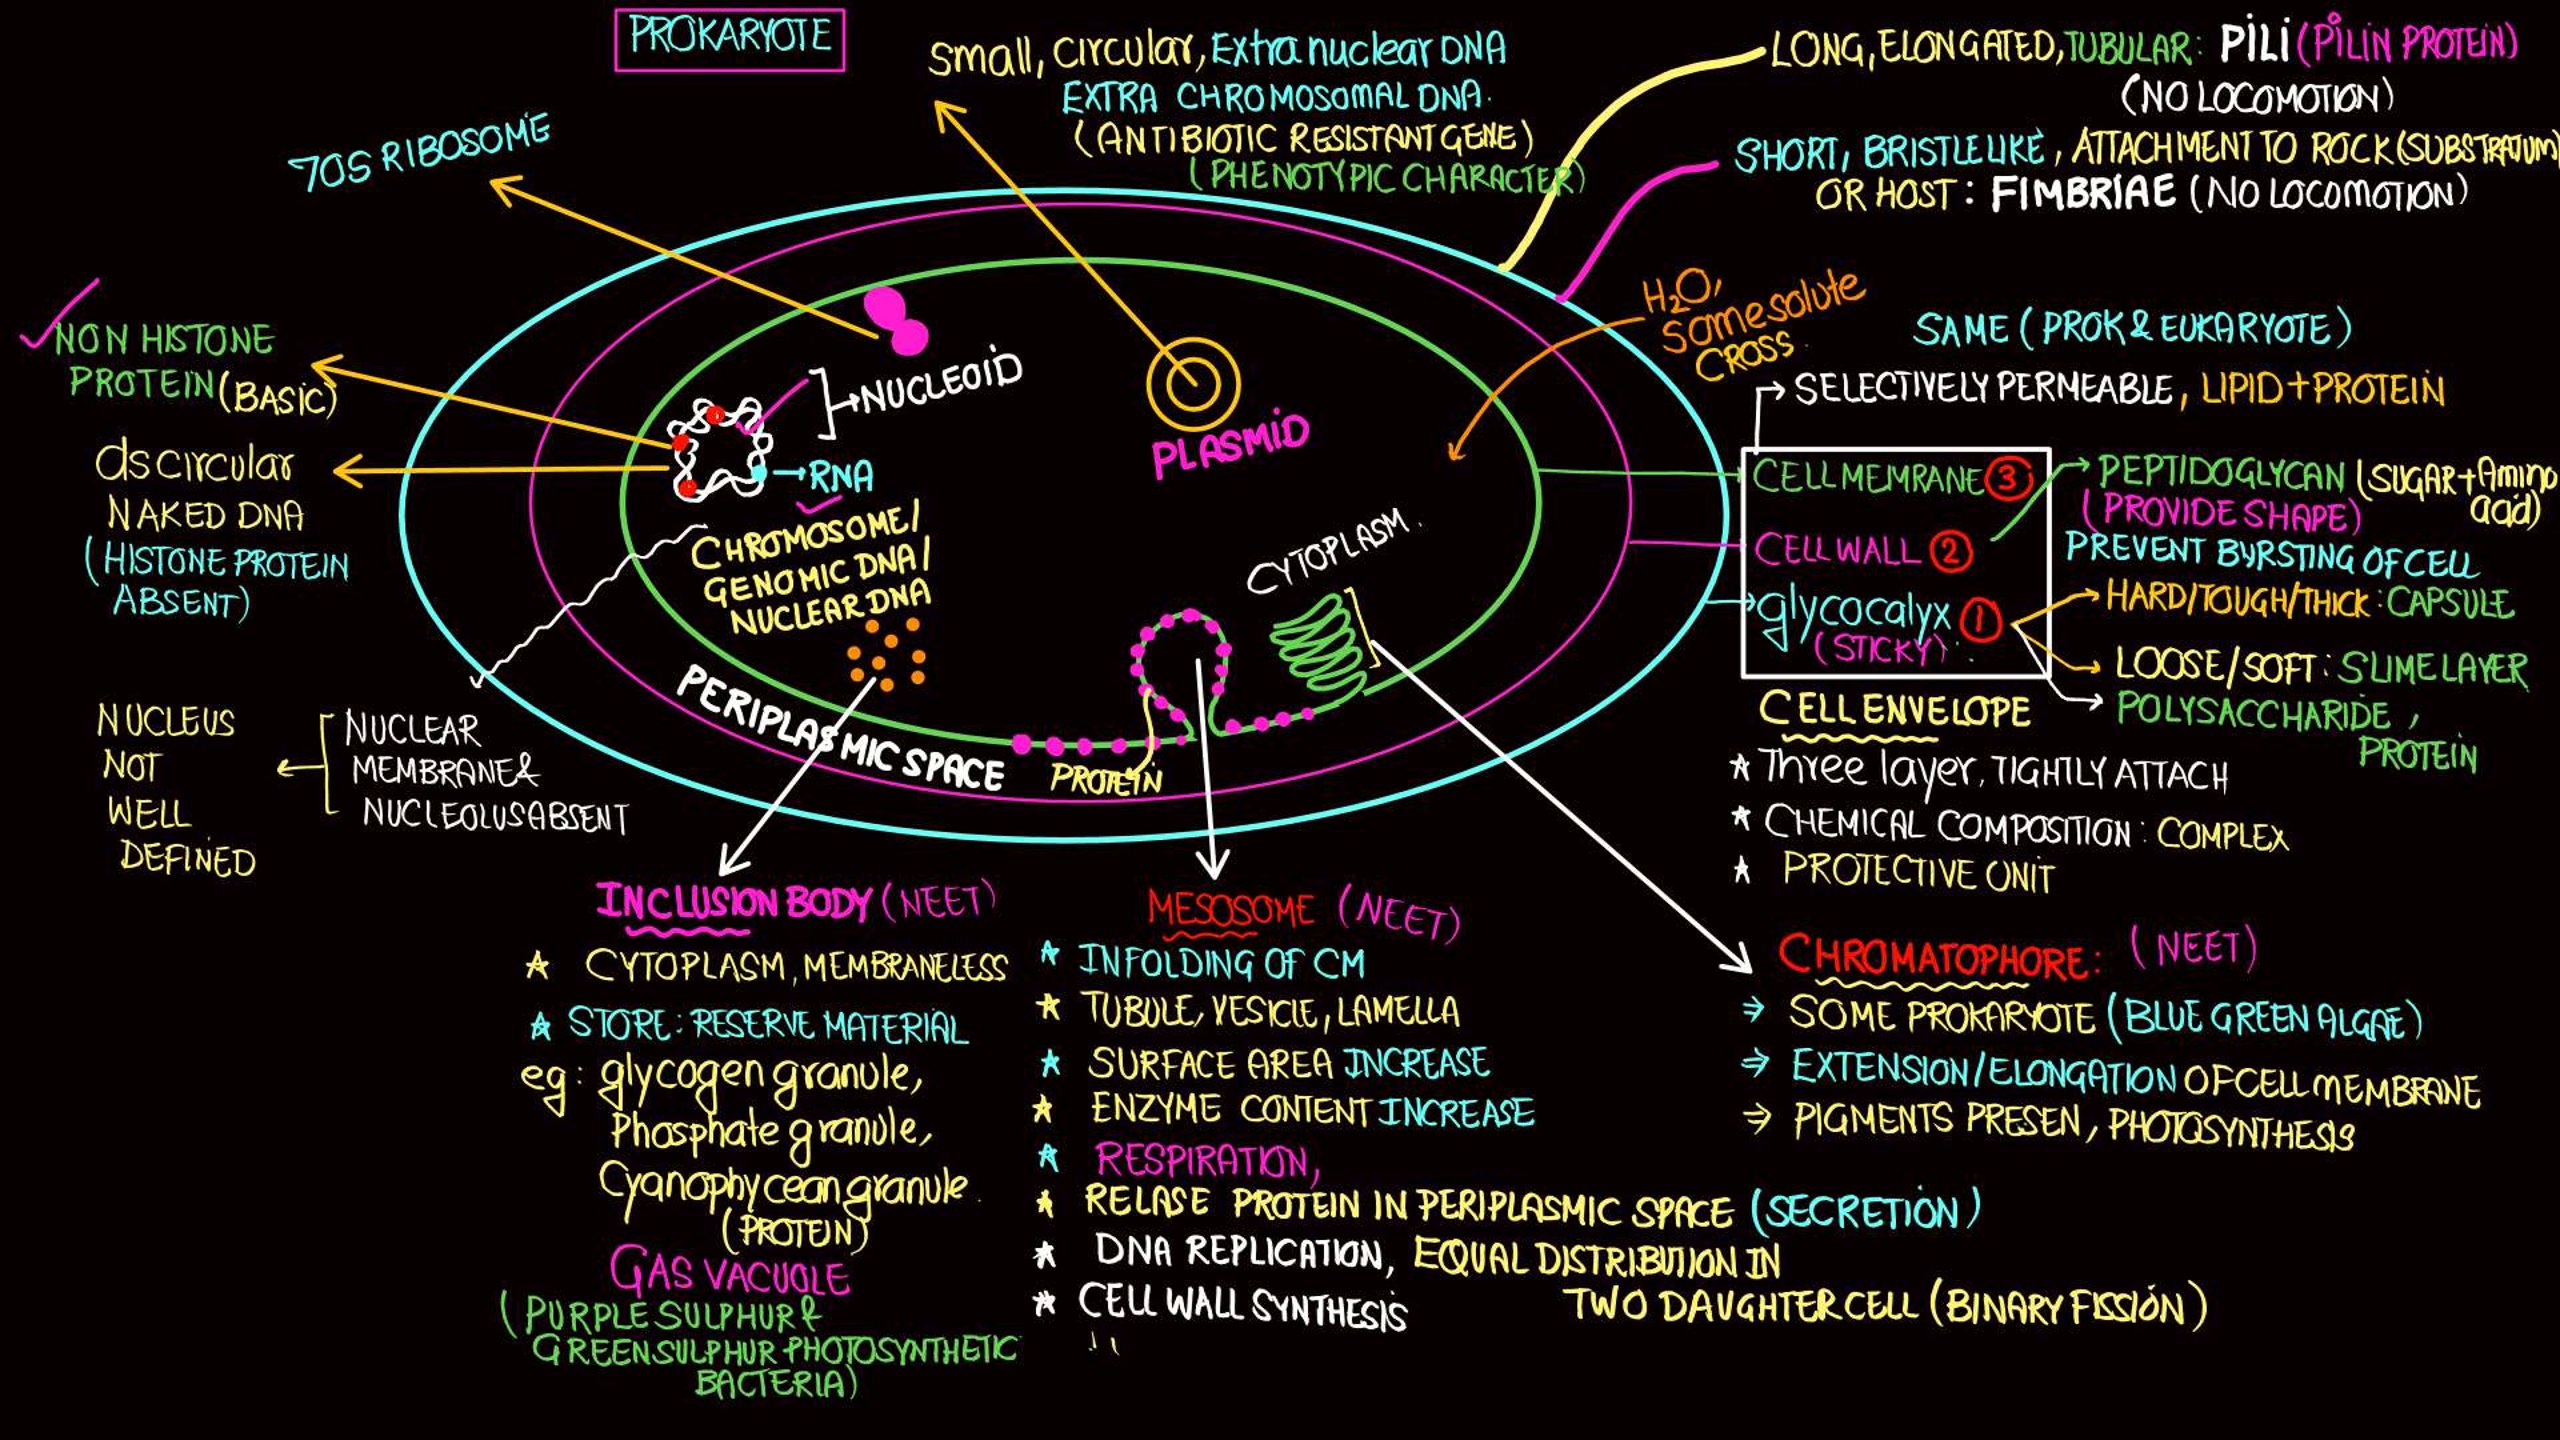 PROKARYOTE
Small, Circular, Extra nuclear DNA
EXTRA CHROMOSOMAL DNA.
(ANTIBIOTIC RESISTANT GENE)
(PHENOTYPIC CHARACTER)
LONG, ELONGATED, TUBULAR: PILI (PILIN PROTEIN)
(NO LOCOMOTION)
SHORT, BRISTLELIKE, ATTACHMENT TO ROCK (SUBSTRATUM)
OR HOST: FIMBRIAE (NO LOCOMOTION)
70S RIBOSOME
NON HISTONE
PROTEIN (BASIC)
dscircular
NAKED DNA
(HISTONE PROTEIN
ABSENT)
NUCLEOID
RNA
CHROMOSOME/
GENOMIC DNA/
NUCLEAR DNA
PLASMID
CYTOPLASM.
H2O,
some solute
CROSS.
PERIPLASMIC SPACE
PROTEIN
NUCLEUS
NOT
WELL
DEFINED
NUCLEAR
MEMBRANE &
NUCLEOLUS ABSENT
SAME (PROK & EUKARYOTE)
SELECTIVELY PERMEABLE, LIPID + PROTEIN
CELL MEMRANE 3
CELL WALL 2
glycocalyx 1
(STICKY)
PEPTIDOGLYCAN (SUGAR + Amino
acid)
(PROVIDE SHAPE)
PREVENT BURSTING OF CELL
HARD/TOUGH/THICK: CAPSULE
LOOSE/SOFT: SLIME LAYER
POLYSACCHARIDE,
PROTEIN
CELL ENVELOPE
* Three layer, TIGHTLY ATTACH
* CHEMICAL COMPOSITION: COMPLEX
* PROTECTIVE UNIT
INCLUSION BODY (NEET)
* CYTOPLASM, MEMBRANELESS
* STORE: RESERVE MATERIAL
eg: glycogen granule,
Phosphate granule,
Cyanophycean granule.
(PROTEIN)
GAS VACUOLE
(PURPLE SULPHUR &
GREEN SULPHUR PHOTOSYNTHETIC
BACTERIA)
MESOSOME (NEET)
* INFOLDING OF CM
* TUBULE, VESICLE, LAMELLA
* SURFACE AREA INCREASE
* ENZYME CONTENT INCREASE
* RESPIRATION,
* RELASE PROTEIN IN PERIPLASMIC SPACE (SECRETION)
* DNA REPLICATION, EQUAL DISTRIBUTION IN
TWO DAUGHTER CELL (BINARY FISSION)
* CELL WALL SYNTHESIS
CHROMATOPHORE: (NEET)
⇒ SOME PROKARYOTE (BLUE GREEN ALGAE)
⇒ EXTENSION/ELONGATION OF CELL MEMBRANE
⇒ PIGMENTS PRESEN, PHOTOSYNTHESIS